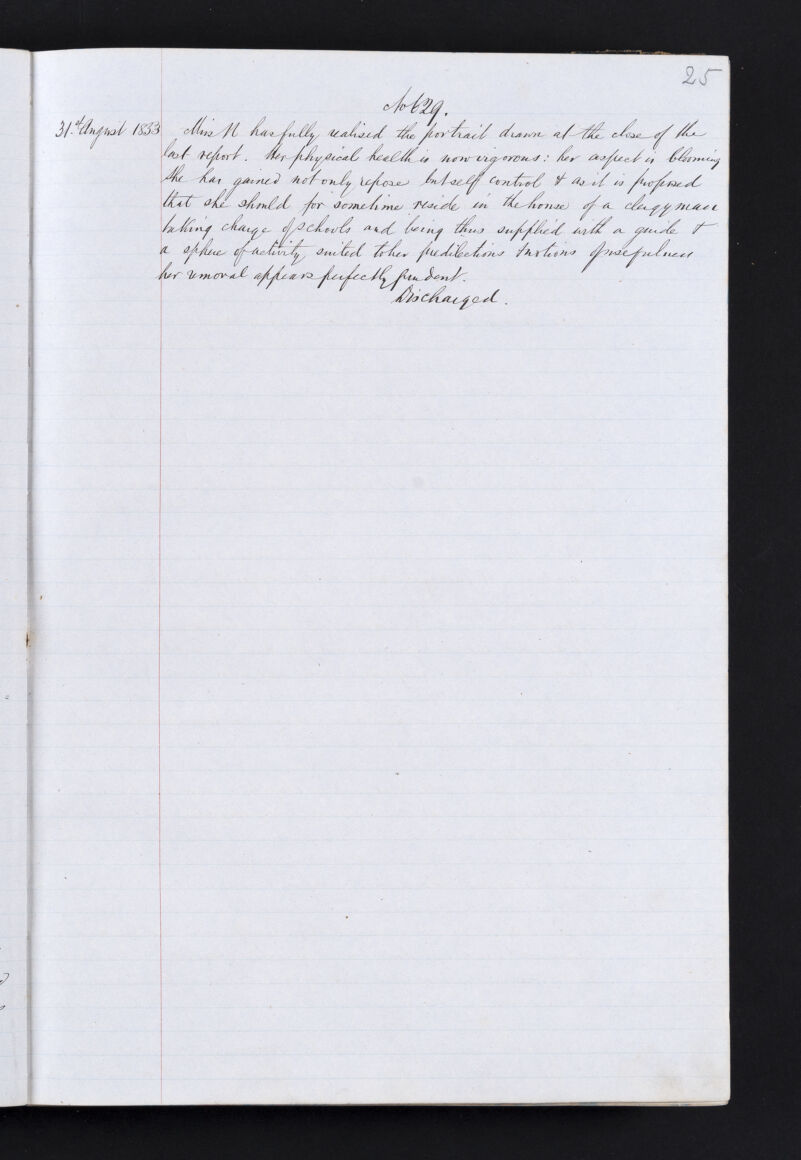 25
No 629.
31st August 1853 Miss N has fully realised the portrait drawn at the close of the
last report. Her physical health is now vigorous: her aspect is blooming
She has gained not only repose but self control & as it is proposed
that she should for sometime reside in the house of a clergyman
taking charge of schools and being thus supplied with a guide &
a sphere of activity, suited to her predilections & notions of usefulness
her removal appears perfectly prudent.
Discharged.